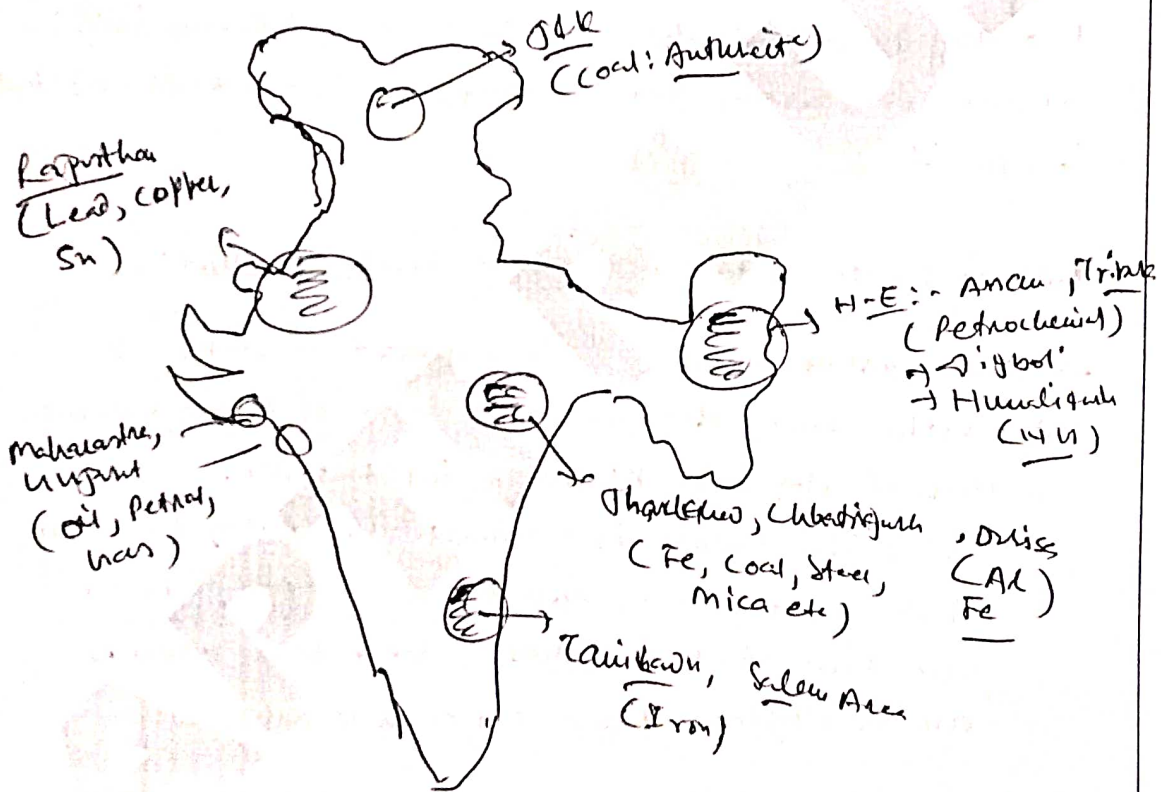 J&K
(Coal: Anthracite)
Rajasthan
(Lead, Copper,
Sn)
N-E :- Assam, Tripura
(Petrochemical)
→ Digboi
→ Numaligarh
Maharastra,
Gujrat
(Oil, Petrol,
Gas)
Jharkhand, Chhattisgarh, Orissa
(Fe, Coal, Steel,
Mica etc)
(Al
Fe)
Tamilnadu, Salem Area
(Iron)